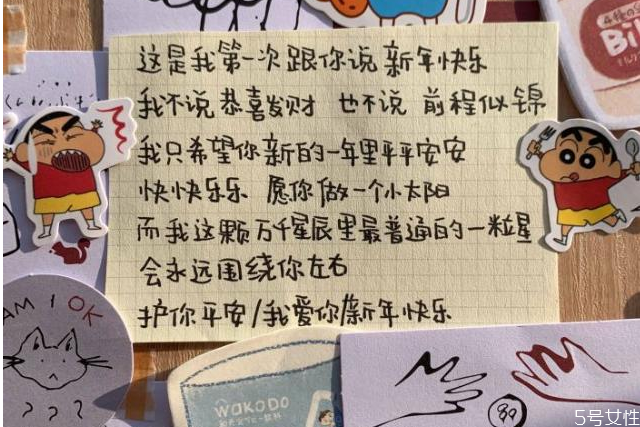 这是我第一次跟你说新年快乐
我不说恭喜发财 也不说 前程似锦
我只希望你新的一年里平平安安
快快乐乐 愿你做一个小太阳
而我这颗万千星辰里最普通的一粒星
会永远围绕你左右
护你平安/我爱你/新年快乐
AM I OK
? ? ?
WAKODO
5号女性